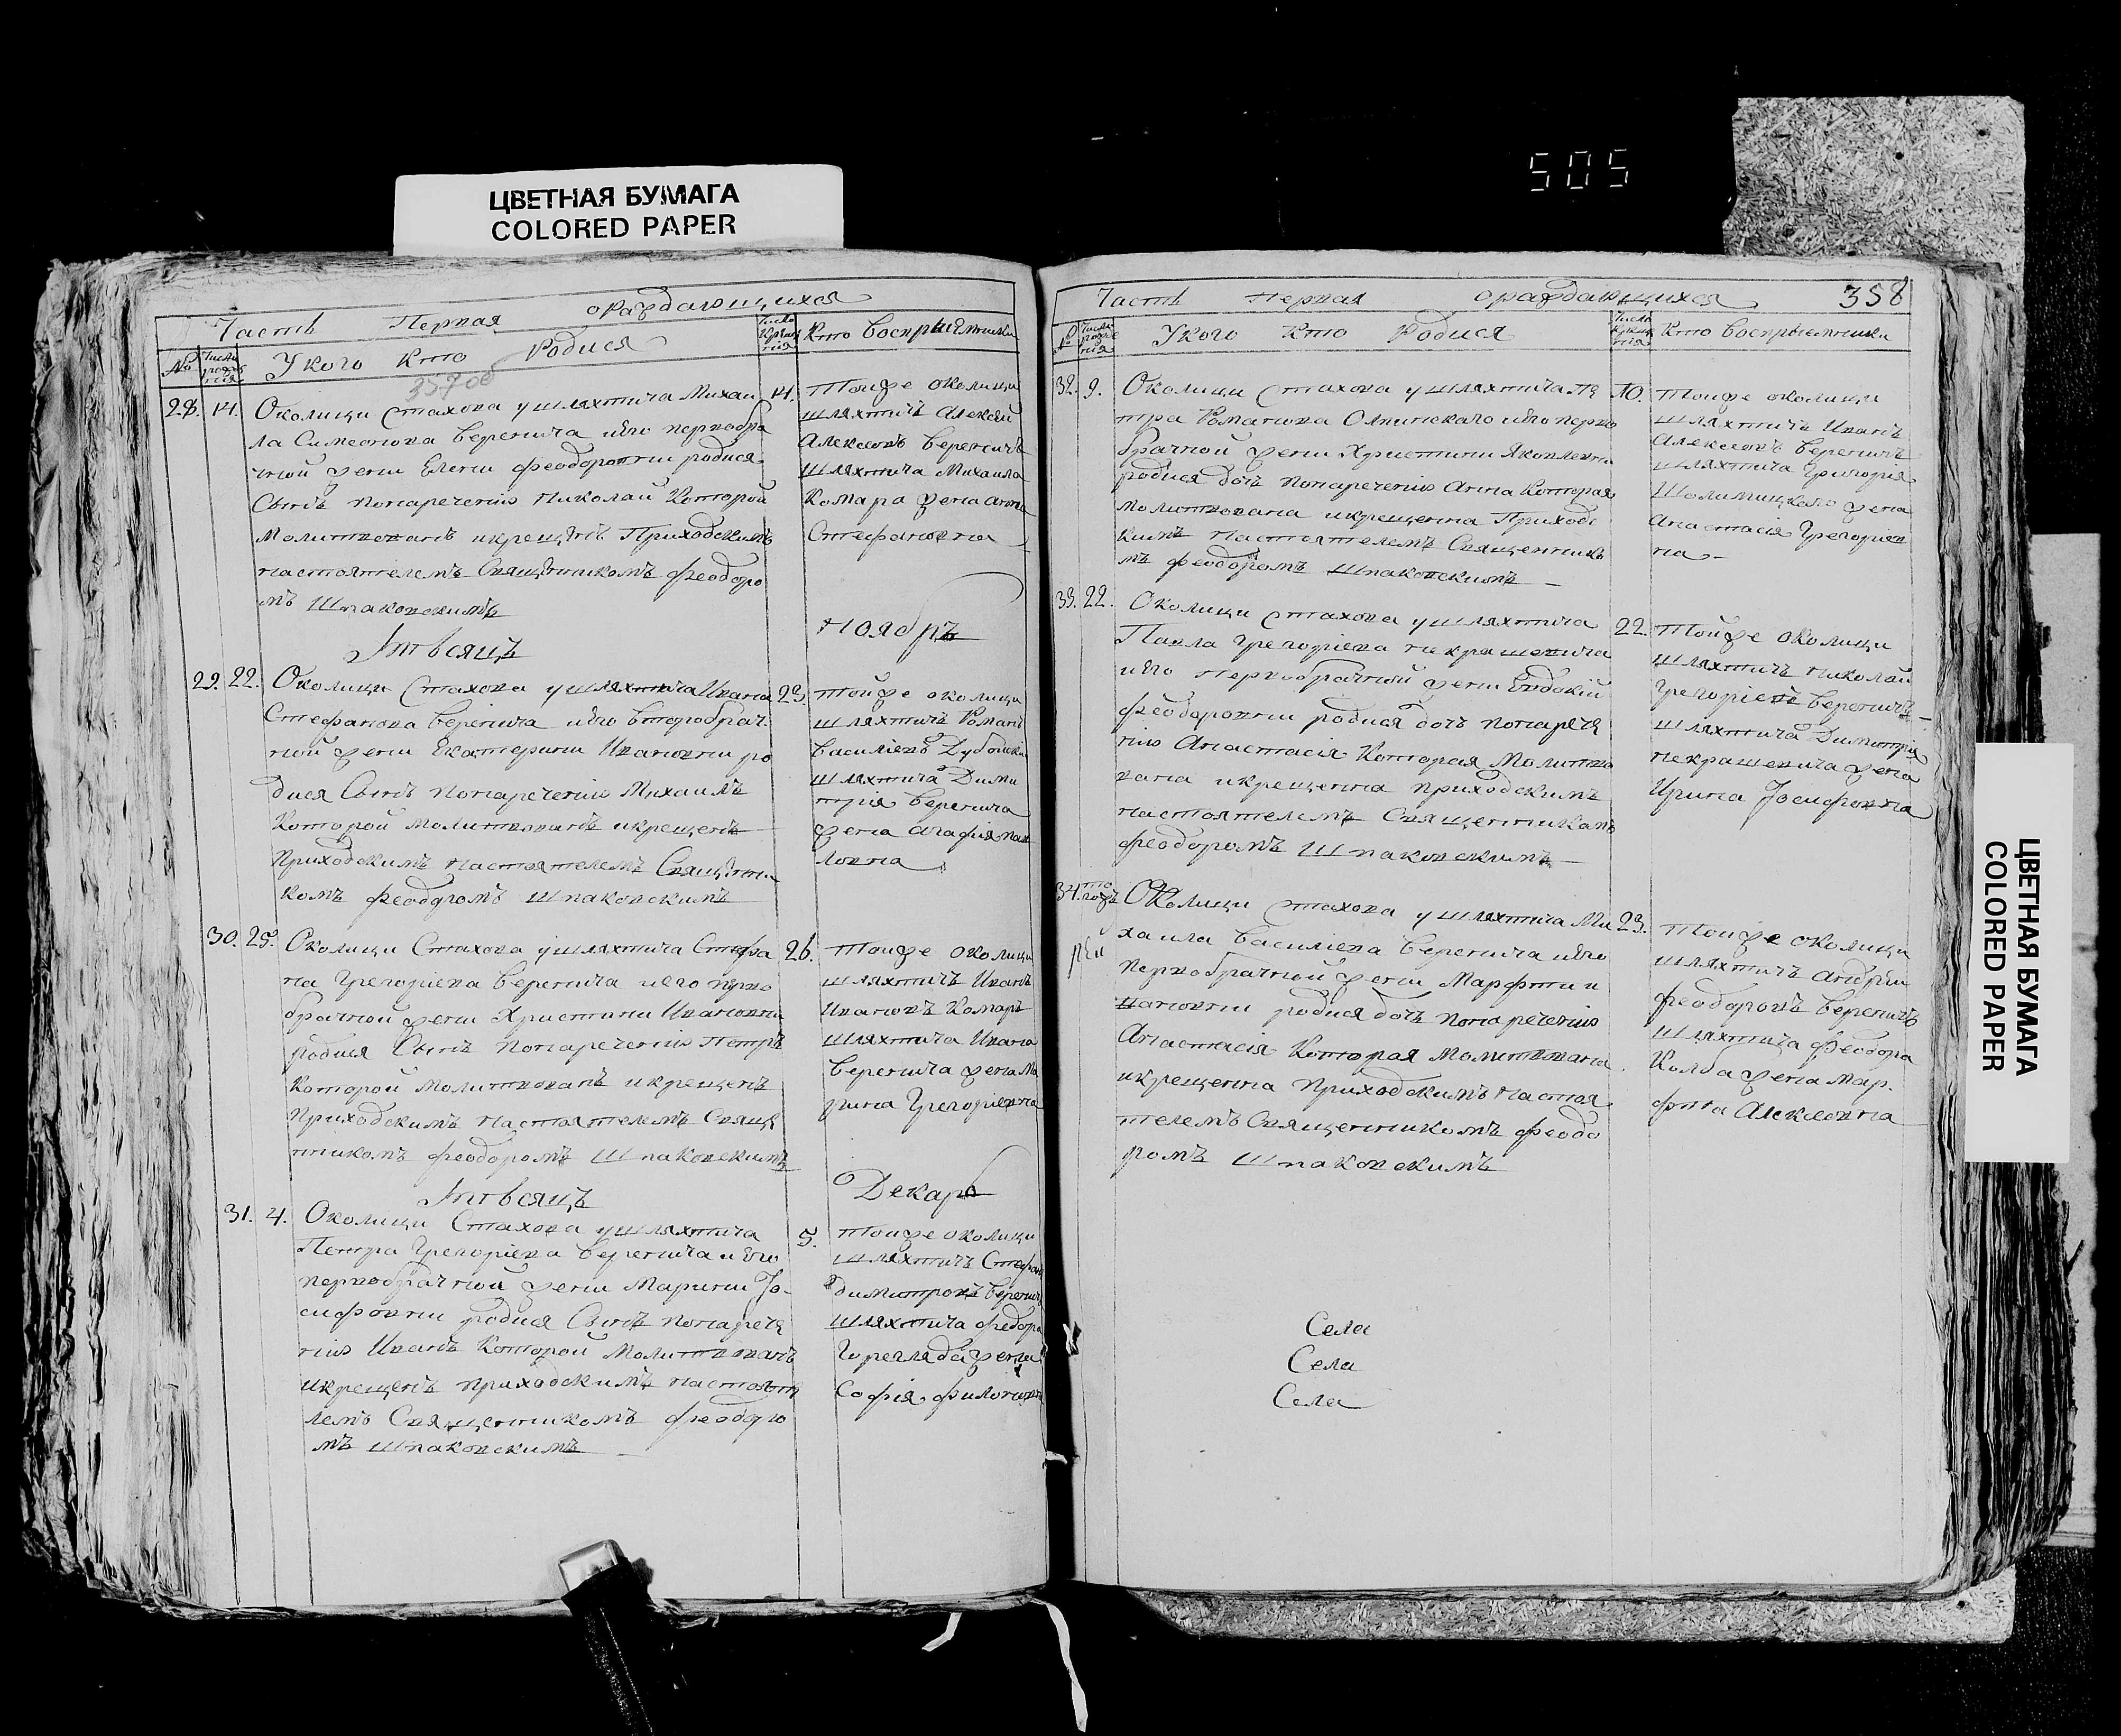 ЦВЕТНАЯ БУМАГА
COLORED PAPER
505
Часть Первая ораждающихся
№ Число рожденія У кого Кто Родися Число крещенія Кто Воспріемники
357 об
28. 14. Околицы Стахова у шляхтича Михаи
ла Симеонова Веренича иего первобра
чной жены Елены Феодоровны родися
Сынъ понаречению Николай Которой
Молитвованъ икрещенъ Приходскимъ
настоятелемъ Священникомъ Феодоро
мъ Шпаковскимъ
14. Тойже околицы
шляхтичъ Алексей
Алексеевъ Вереничъ
шляхтича Михаила
Комара жена Анна
Стефановна
Мѣсяцъ Ноябрь
29. 22. Околицы Стахова у шляхтича Ивана
Стефанова Веренича иего второбрач
ной жены Екатерины Ивановны ро
дися Сынъ понаречению Михаилъ
Которой молитвованъ икрещенъ
Приходскимъ Настоятелемъ Священни
комъ Феодоромъ Шпаковскимъ
23. тойже околицы
шляхтичъ Романъ
Василіевъ
шляхтича Дими
трія Веренича
жена Агафія Пав
ловна
30. 25. Околицы Стахова у шляхтича Стефа
на Григоріева Веренича иего перво
брачной жены Христины Ивановны
родися Сынъ понаречению Петръ
Которой молитвованъ икрещенъ
Приходскимъ Настоятелемъ Священ
никомъ Феодоромъ Шпаковскимъ
26. Тойже околицы
шляхтичъ Иванъ
Ивановъ Комаръ
шляхтича Ивана
Веренича жена Ма
рина Григоріевна
Мѣсяцъ Декарь
31. 4. Околицы Стахова у шляхтича
Петра Григоріева Веренича и его
первобрачной жены Марины Іо-
сифовны родися Сынъ понарече
нию Иванъ Которой Молитвованъ
икрещенъ приходскимъ настояте
лемъ Священникомъ Феодоро
мъ Шпаковскимъ
5. тойже околицы
шляхтичъ Стефанъ
Димитровъ Вереничъ
шляхтича Федора
Горегляда жена
Софія
Часть Первая ораждающихся 358
№ Число рожденія У кого Кто Родися Число крещенія Кто Воспріемники
32. 9. Околицы Стахова у шляхтича Пе
тра Романова Олпинскаго иего перво
брачной жены Христины Яковлевны
родися дочь понаречению Анна Которая
молитвована икрещенна Приходс
кимъ Настоятелемъ Священнико
мъ Феодоромъ Шпаковскимъ
10. Тойже околицы
шляхтичъ Иванъ
Алексеевъ Вереничъ
шляхтича Григорія
жена
Анастасія Григориев
на
33. 22. Околицы Стахова у шляхтича
Павла Григоріева Некрашевича
иего первобрачной жены Евдокіи
Феодоровны родися дочь понарече
нию Анастасія Которая Молитво
вана икрещенна приходскимъ
настоятелемъ Священникомъ
Феодоромъ Шпаковскимъ
22. Тойже околицы
шляхтичъ Николай
Григоріевъ Вереничъ
шляхтича Димитрія
Некрашевича жена
Ирина Іосифовна
34. Околицы Стахова у шляхтича Ми
хаила Василіева Веренича иего
первобрачной жены Марфты И
вановны родися дочь понаречению
Анастасія Которая Молитвована
икрещенна Приходскимъ Настоя
телемъ Священникомъ Феодо
ромъ Шпаковскимъ
23. Тойже околицы
шляхтичъ Андрей
Феодоровъ Вереничъ
шляхтича Феодора
Колба жена Мар
фта Алексеевна
Села
Села
Села
ЦВЕТНАЯ БУМАГА
COLORED PAPER